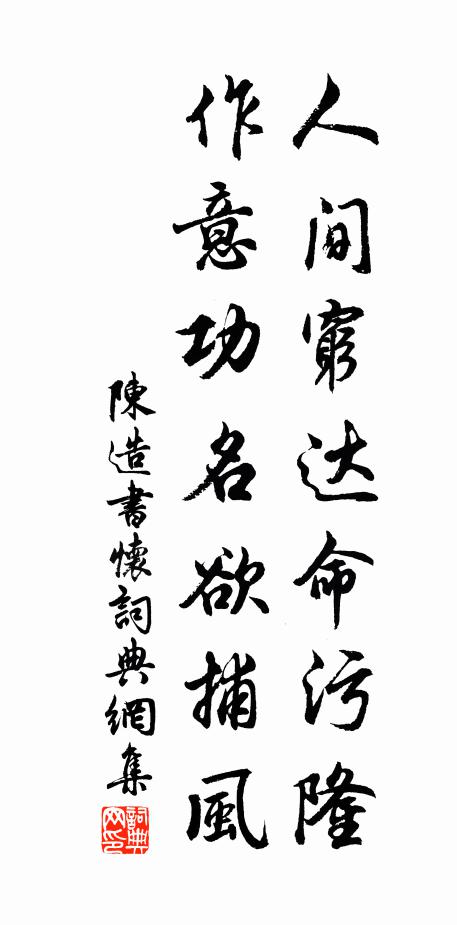 人間窮达命污隆
作意功名欲捕風
陳造書懷詞典網集
詞典网印